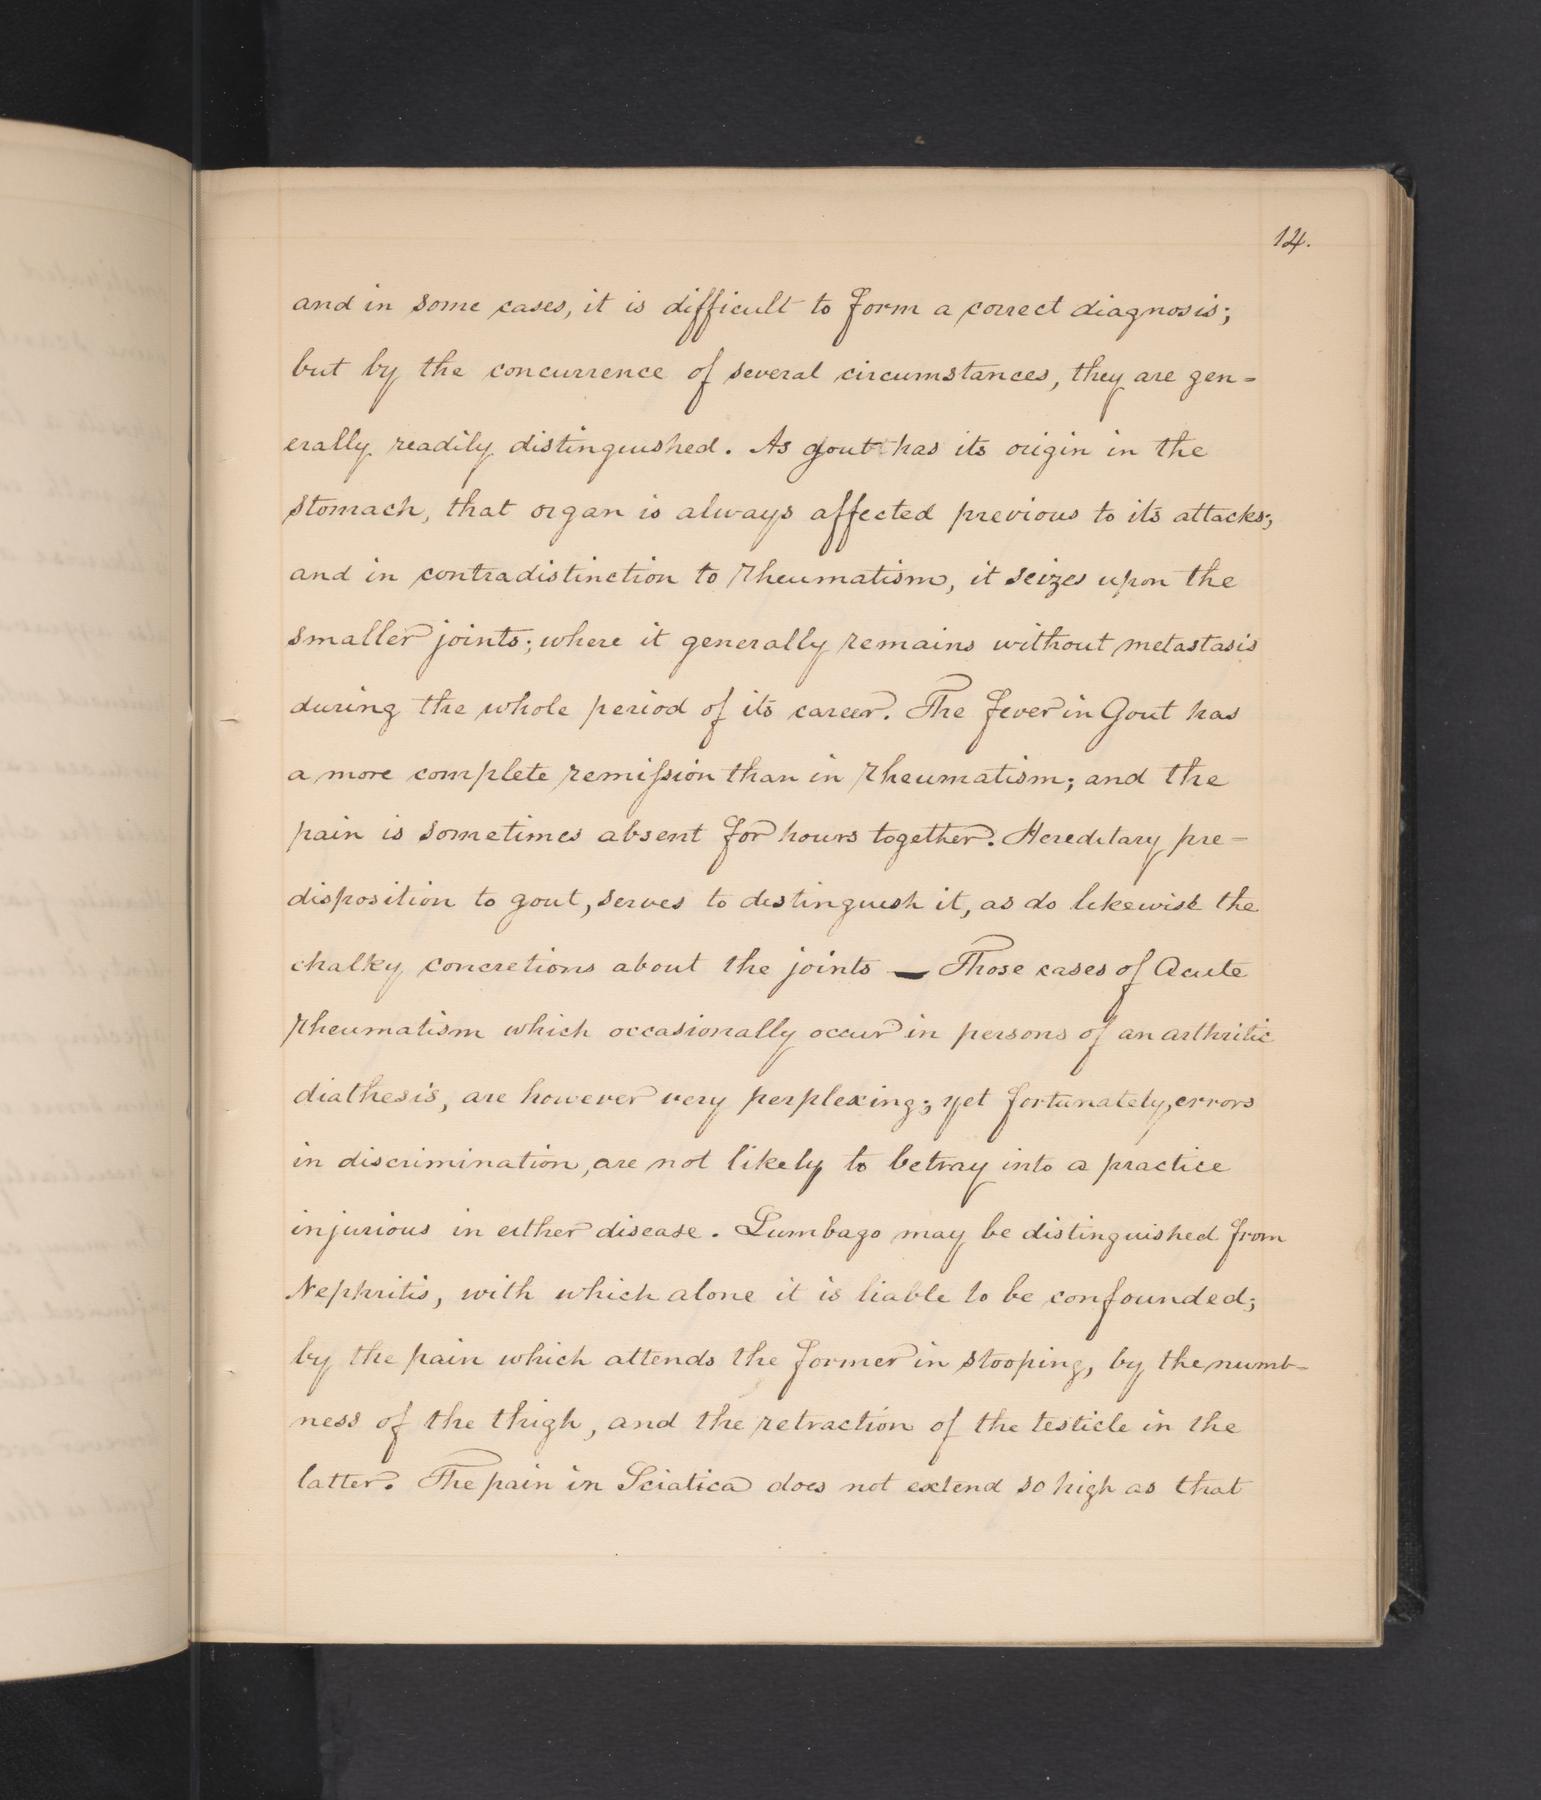 14.
and in some cases, it is difficult to form a correct diagnosis;
but by the concurrence of several circumstances, they are gen=
erally readily distinguished. As gout has its origin in the
stomach, that organ is always affected previous to its attacks;
and in contradistinction to Rheumatism, it seizes upon the
smaller joints; where it generally remains without metastasis
during the whole period of its career. The fever in Gout has
a more complete remiſsion than in Rheumatism; and the
pain is sometimes absent for hours together. Hereditary pre-
disposition to gout, serves to distinguish it, as do likewise the
chalky concretions about the joints — Those cases of Acute
Rheumatism which occasionally occur in persons of an arthritic
diathesis, are however very perplexing; yet fortunately, errors
in discrimination, are not likely to betray into a practice
injurious in either disease. Lumbago may be distinguished from
Nephritis, with which alone it is liable to be confounded;
by the pain which attends the former in stooping, by the numb-
ness of the thigh, and the retraction of the testicle in the
latter. The pain in Sciatica does not extend so high as that